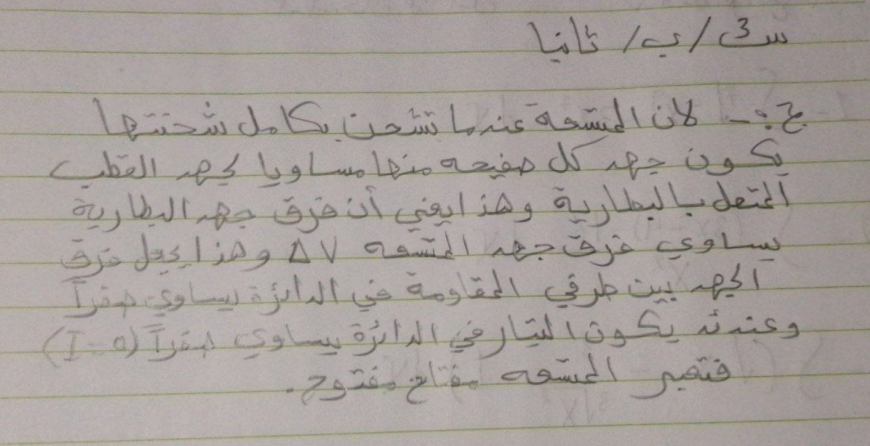 س3 / ب / ثانيا
ج :- لان المتسعة عندما تشحن بكامل شحنتها
يكون جهد كل صفيحه منها مساويا لجهد القطب
المتصل بالبطارية وهذا يعني أن فرق جهد البطارية
يساوي فرق جهد المتسعه ΔV وهذا يجعل فرق
الجهد بين طرفي المقاومة في الدائرة يساوي صفراً
وعندئذ يكون التيار في الدائرة يساوي صفراً (I=0)
فتصبر المتسعه مفتاح مفتوح.